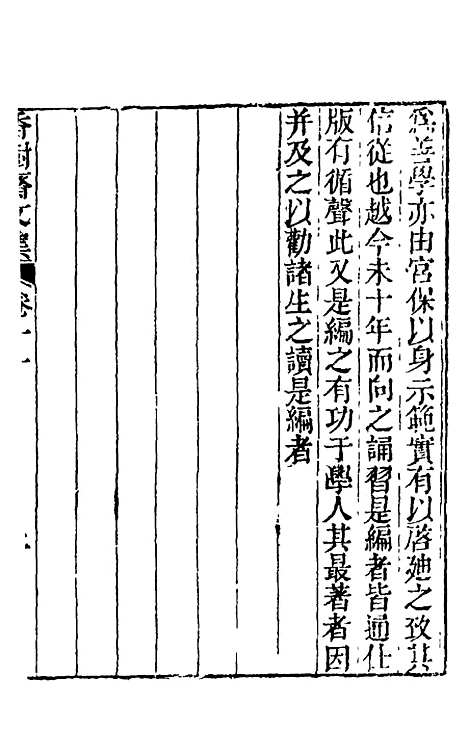 爲善學亦由宮保以身示範實有以啓廸之致其
信從也越今未十年而向之誦習是編者皆通仕
版有循聲此又是編之有功于學人其最著者因
并及之以勸諸生之讀是編者
香樹齋文集 卷十一